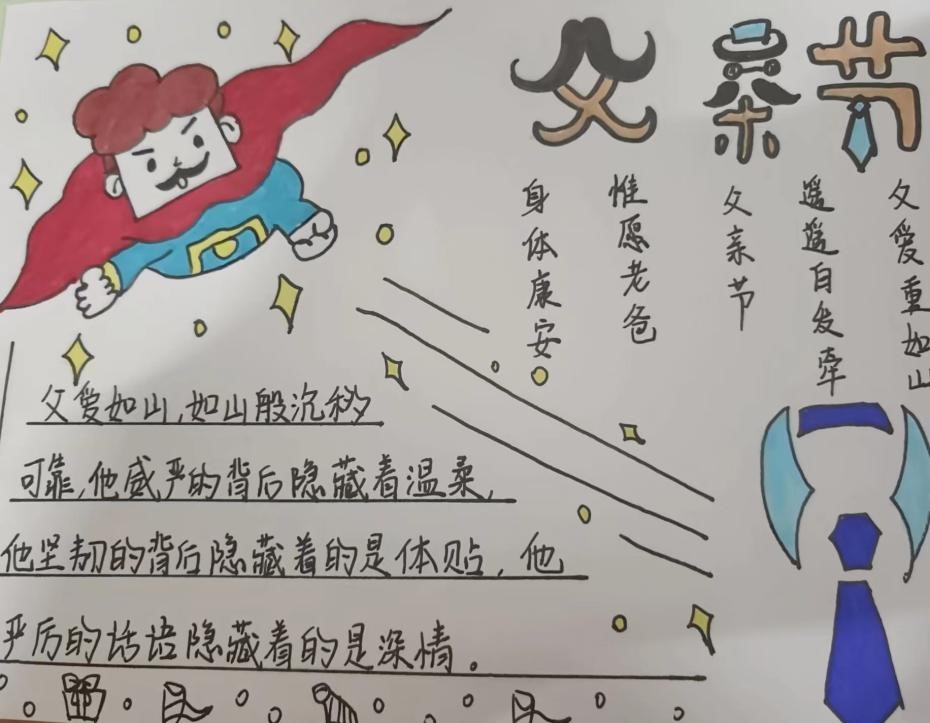 父亲节
父爱重如山
遥遥自发牵
父亲节
惟愿老爸
身体康安
父爱如山,如山般沉
可靠,他威严的背后隐藏着温柔,
他坚韧的背后隐藏着的是体贴,他
严厉的话语隐藏着的是深情。